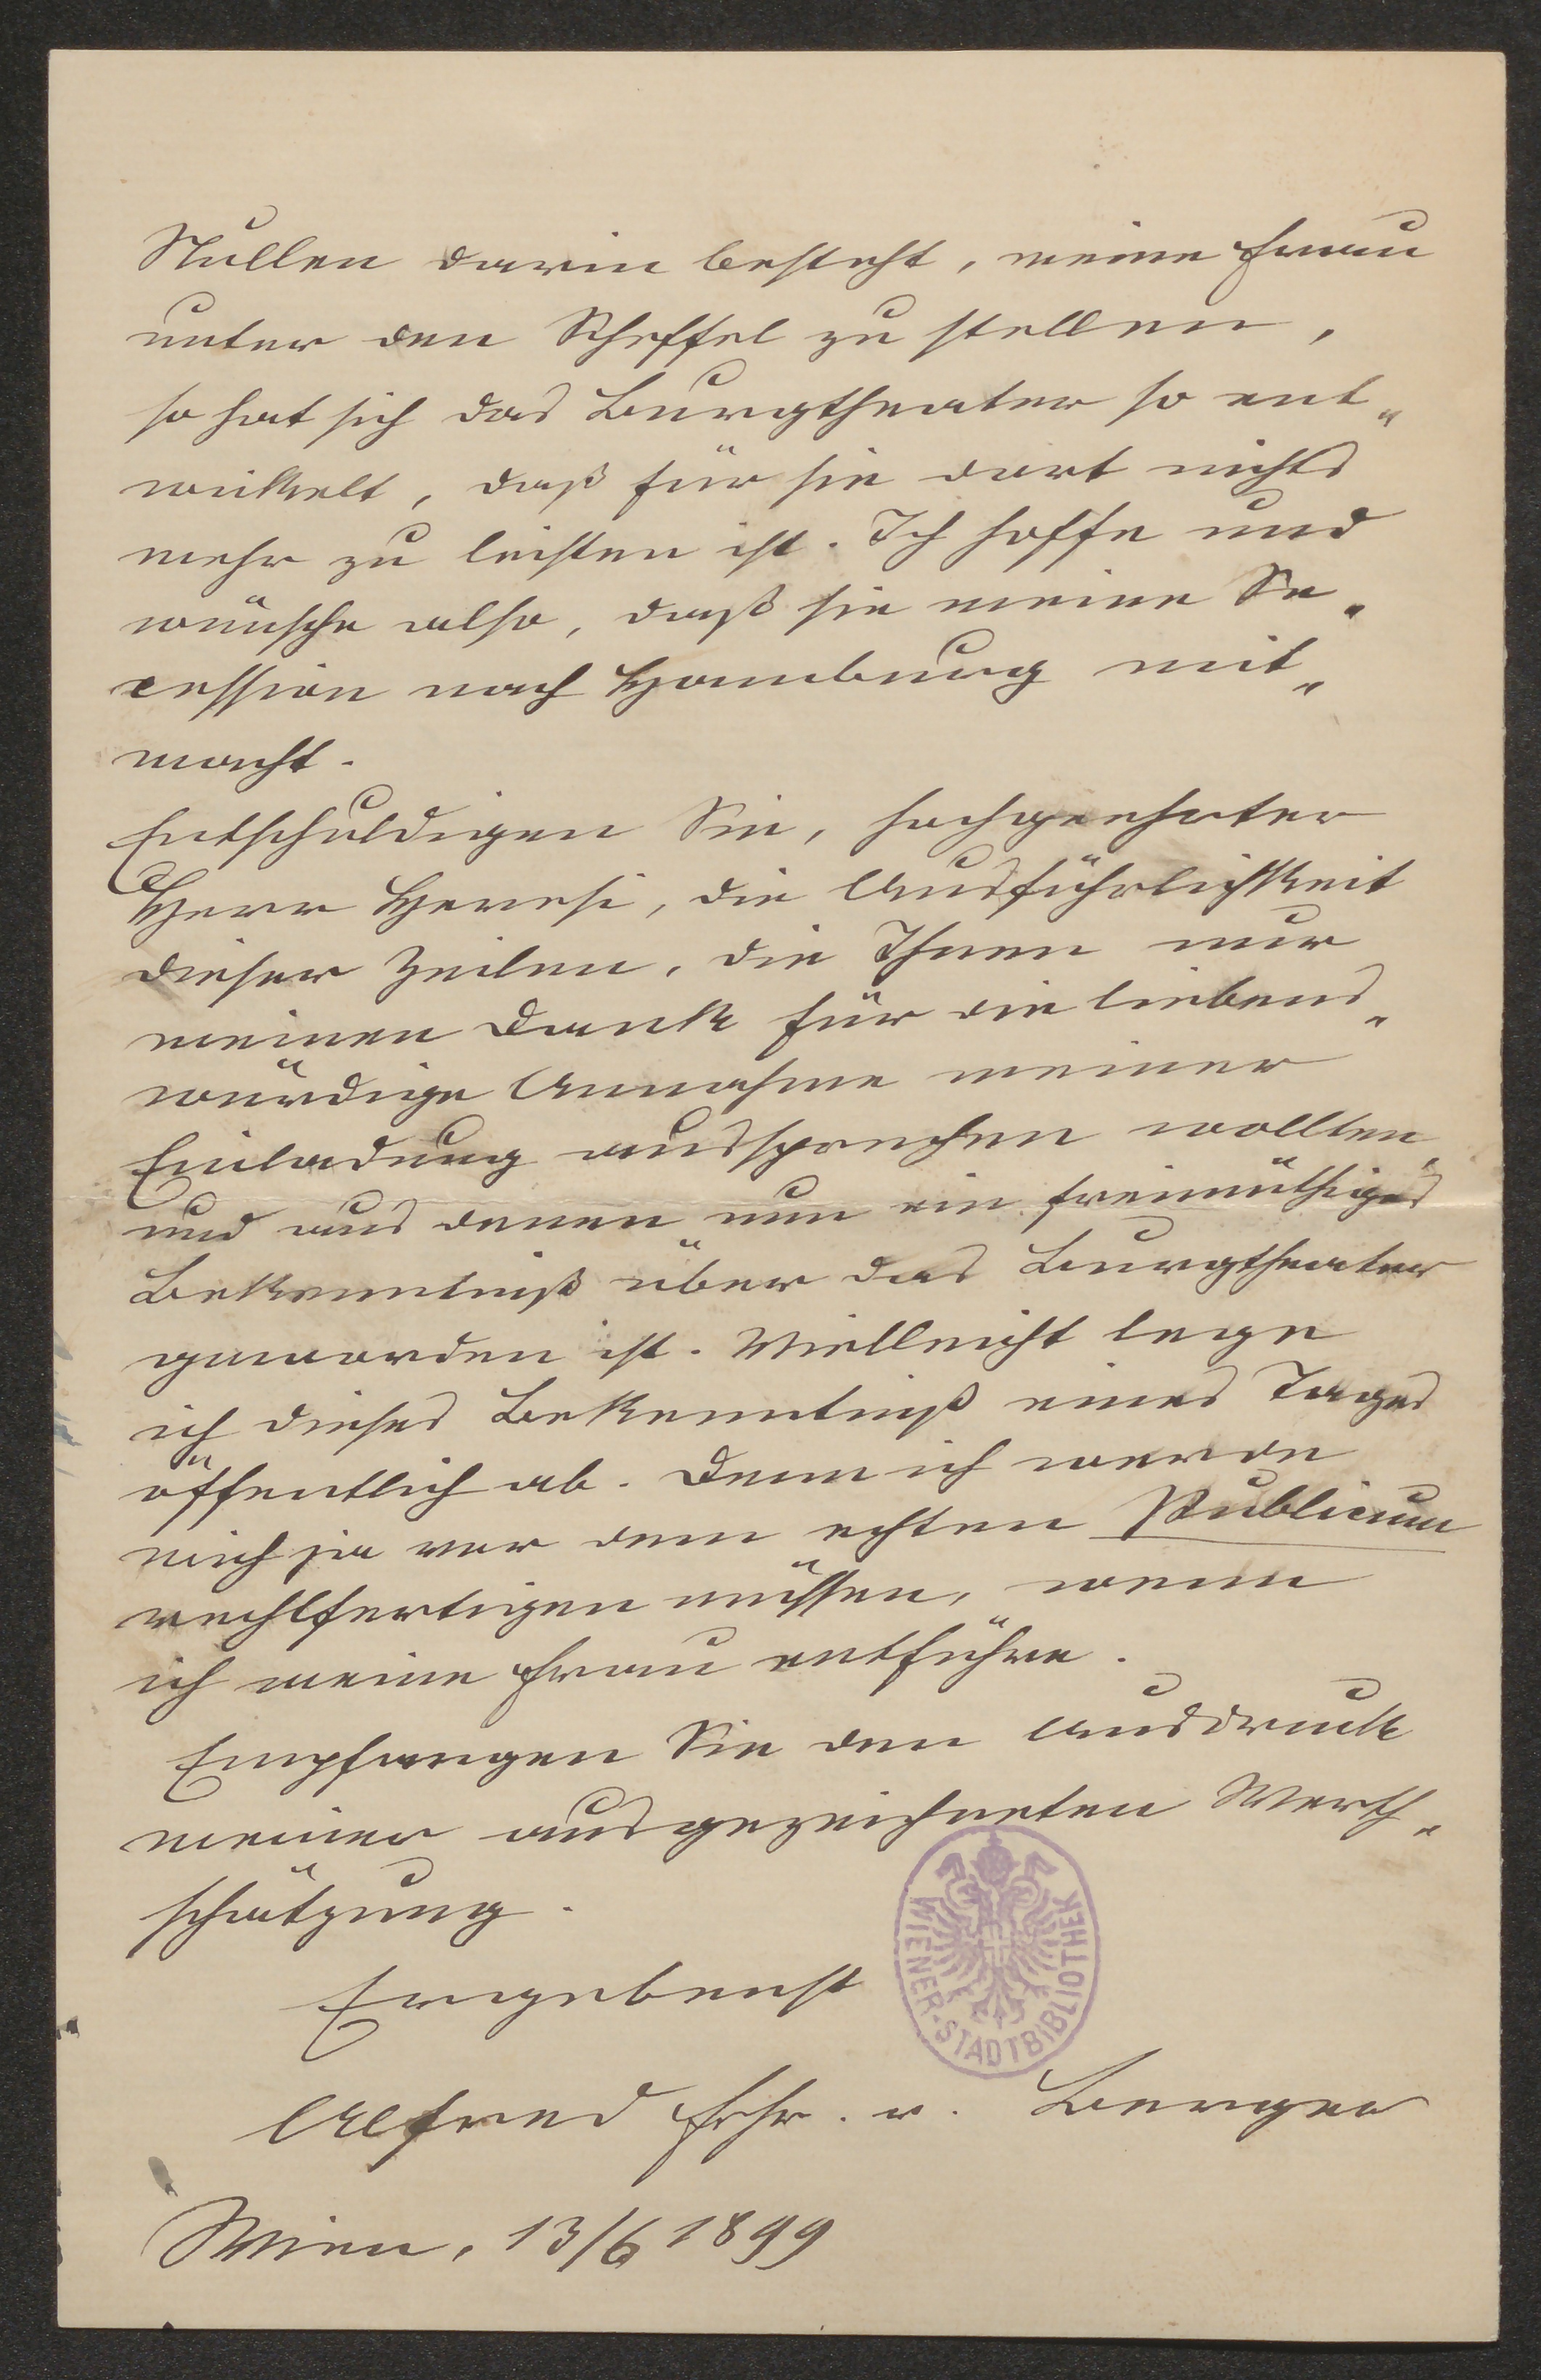 Nullen darin besteht, meine Frau
unter den Scheffel zu stellen,
so hat sich das Burgtheater so ent„
wickelt, daß für sie dort nichts
mehr zu leisten ist. Ich hoffe und
wünsche also, daß sie meine Se„
cession nach Hamburg mit„
macht.
Entschuldigen Sie, hochgeehrter
Herr Hevesi, die Ausführlichkeit
dieser Zeilen, die Ihnen nur
meinen Dank für die liebens„
würdige Annahme meiner
Einladung aussprechen wollten,
und aus denen nun ein freimüthiges
Bekenntniß über das Burgtheater
geworden ist. Vielleicht lege
ich dieses Bekenntniß eines Tages
öffentlich ab. Denn ich werde
mich ja vor dem echten Publicum
rechtfertigen müssen, wenn
ich meine Frau entführe.
Empfangen Sie den Ausdruck
meiner ausgezeichneten Werth„
schätzung.
Ergebenst
Alfred Frhr. v. Berger
Wien, 13/6 1899
WIENER-STADTBIBLIOTHEK